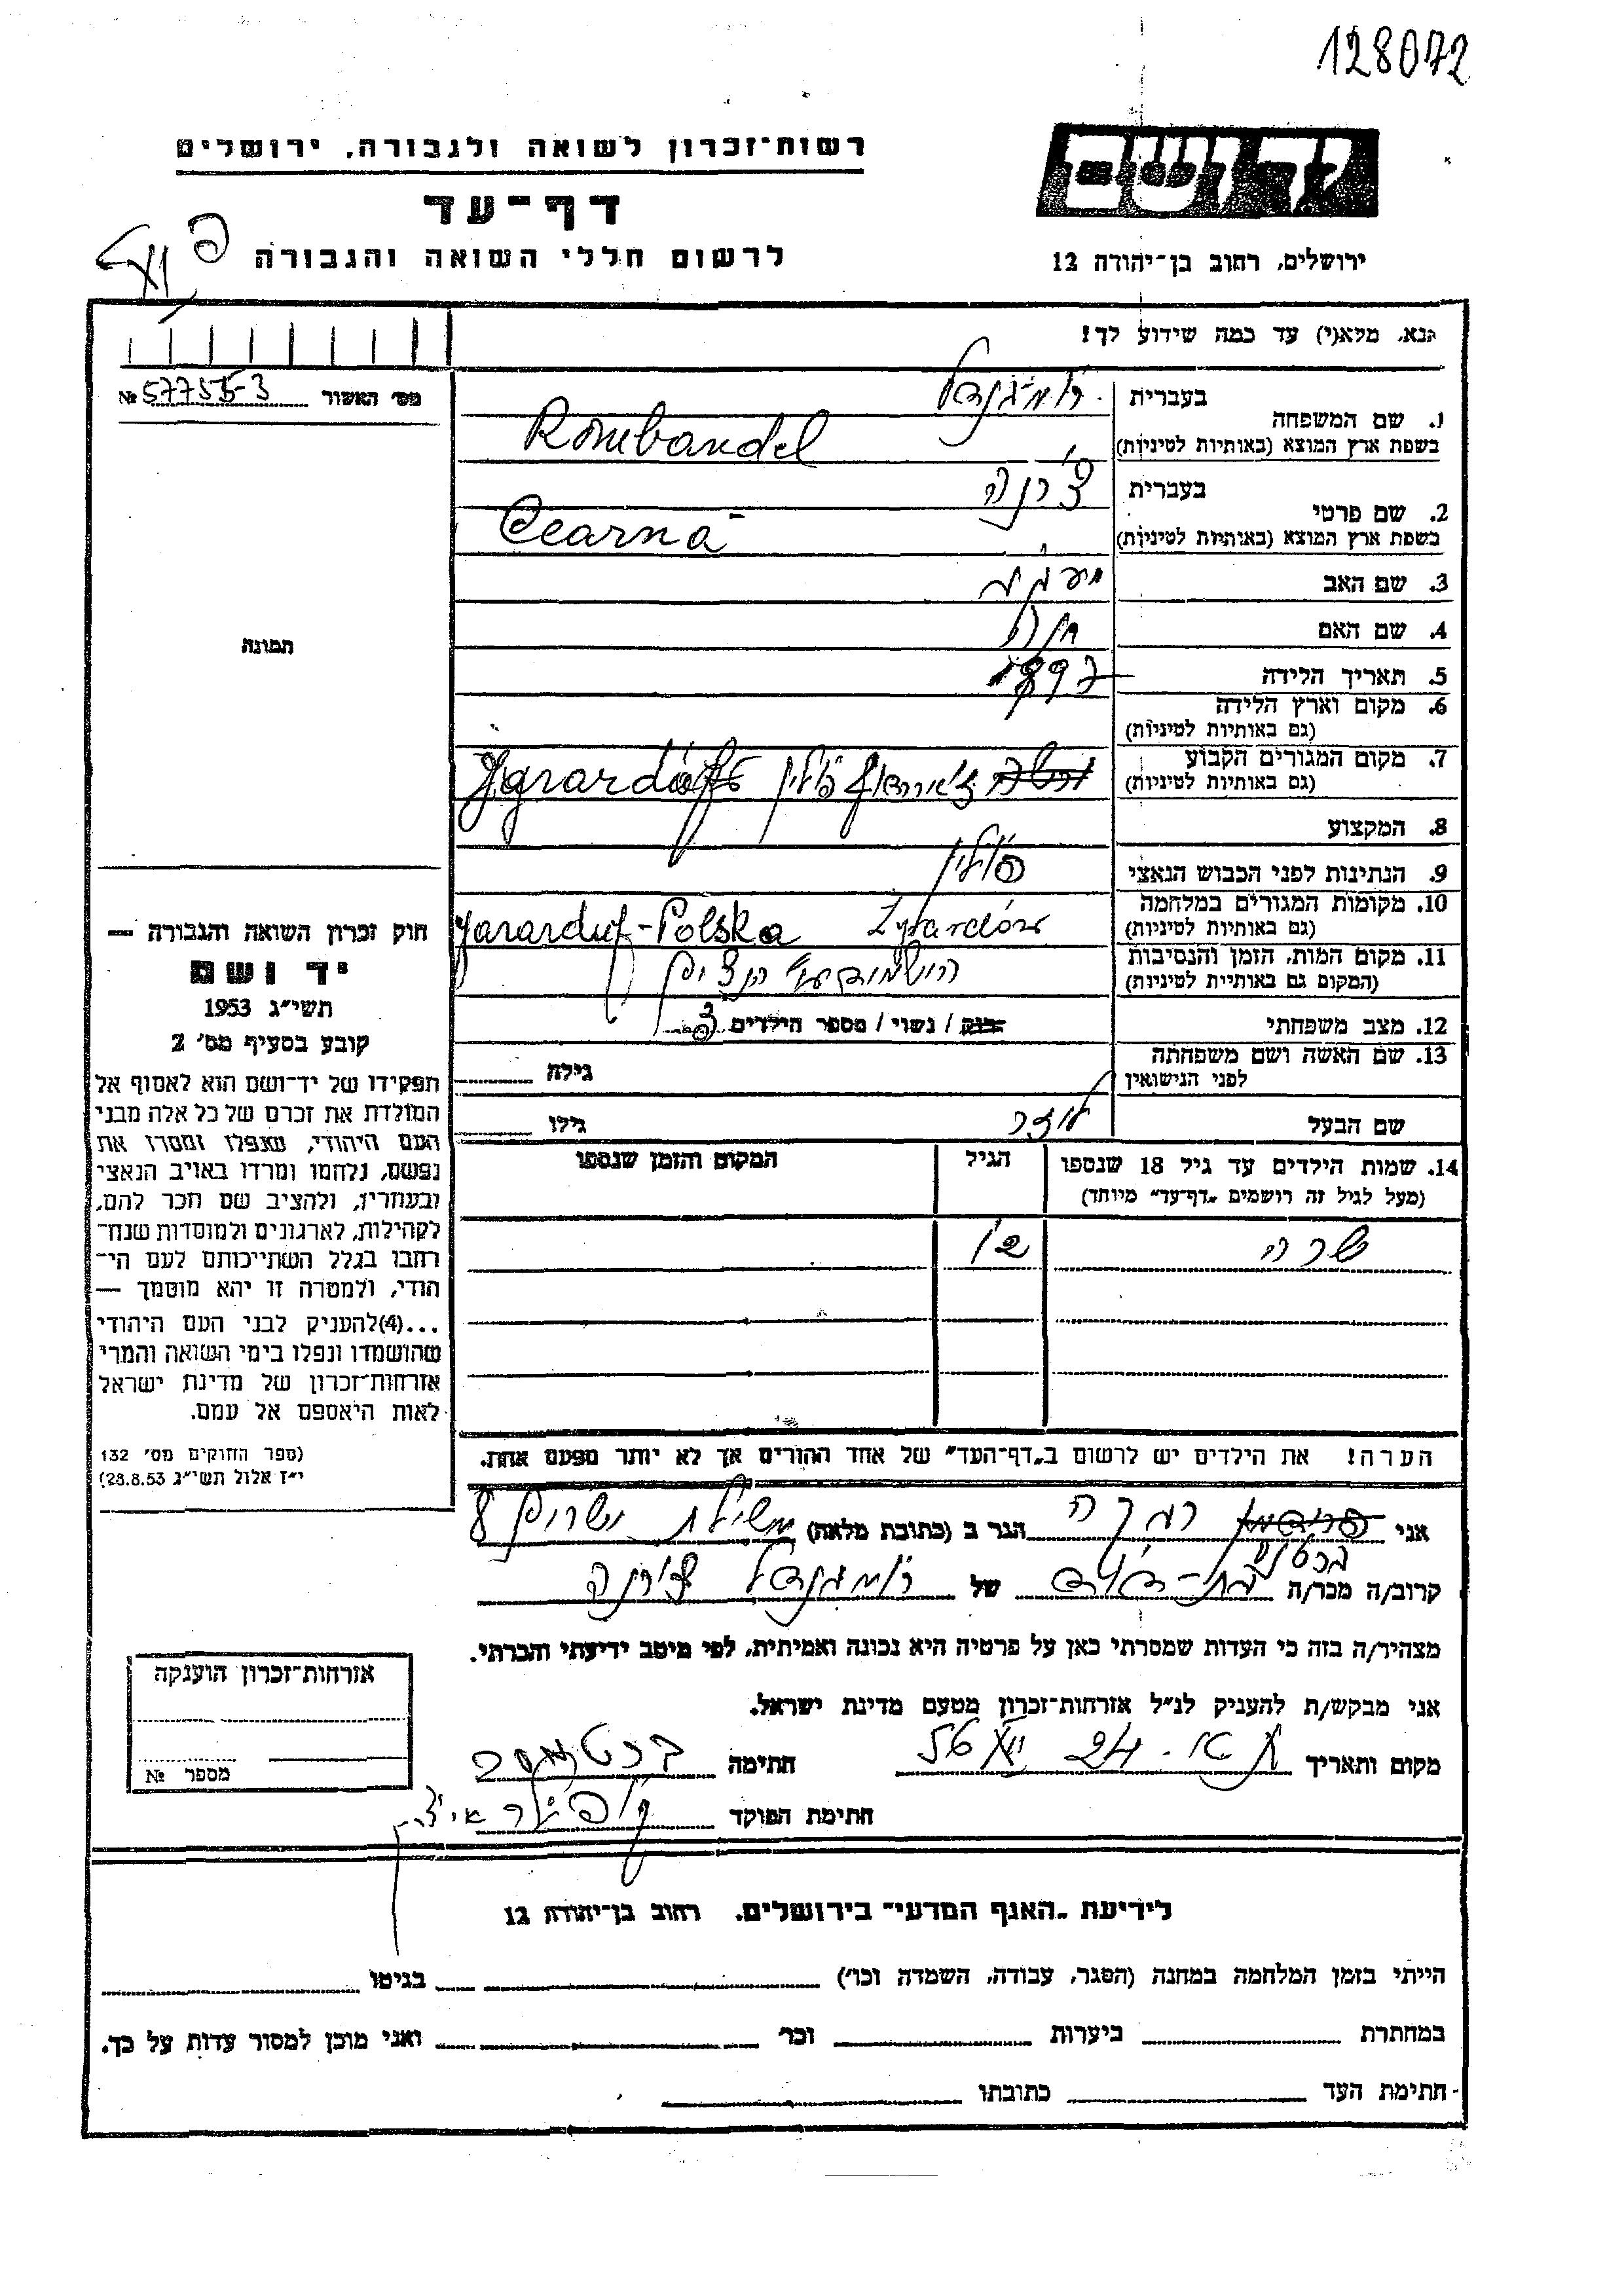 128072
רשות־זכרון לשואה ולגבורה, ירושלים
דף־עד
לרשום חללי השואה והגבורה
יד ושם
ירושלים, רחוב בן־יהודה 12
נא, מלא(י) עד כמה שידוע לך!
מס׳ האשור № 57755-3
1. שם המשפחה בעברית רומבנדל
בשפת ארץ המוצא (באותיות לטיניות) Rombandel
2. שם פרטי בעברית צ׳רנה
בשפת ארץ המוצא (באותיות לטיניות) Cearna
3. שם האב
4. שם האם
5. תאריך הלידה 1897
6. מקום וארץ הלידה
(גם באותיות לטיניות)
7. מקום המגורים הקבוע פולין
(גם באותיות לטיניות)
8. המקצוע
9. הנתינות לפני הכבוש הנאצי פולין
10. מקומות המגורים במלחמה Jararduf-Polska Żyrardów
(גם באותיות לטיניות)
11. מקום המות, הזמן והנסיבות
(המקום גם באותיית לטיניות)
12. מצב משפחתי רווק / נשוי / מספר הילדים 3
13. שם האשה ושם משפחתה גילה
לפני הנישואין
שם הבעל לוזר גילו
14. שמות הילדים עד גיל 18 שנספו הגיל המקום והזמן שנספו
(מעל לגיל זה רושמים „דף־עד״ מיוחד)
שרה 12
הערה! את הילדים יש לרשום ב„דף־העד״ של אחד ההורים אך לא יותר מפעם אחת.
תמונה
חוק זכרון השואה והגבורה —
יד ושם
תשי״ג 1953
קובע בסעיף מס׳ 2
תפקידו של יד־ושם הוא לאסוף אל
המולדת את זכרם של כל אלה מבני
העם היהודי, שנפלו ומסרו את
נפשם, נלחמו ומרדו באויב הנאצי
ובעוזריו, ולהציב שם וזכר להם,
לקהילות, לארגונים ולמוסדות שנח־
רבו בגלל השתייכותם לעם הי־
הודי, ולמטרה זו יהא מוסמך —
...(4)להעניק לבני העם היהודי
שהושמדו ונפלו בימי השואה והמרי
אזרחות־זכרון של מדינת ישראל
לאות היאספם אל עמם.
(ספר החוקים מס׳ 132
י״ז אלול תשי״ג 28.8.53)
אני רבקה הגר ב (כתובת מלאה) משילת ישרים 8
קרוב/ה מכר/ה בת-דודה של רומבנדל צ׳רנה
מצהיר/ה בזה כי העדות שמסרתי כאן על פרטיה היא נכונה ואמיתית, לפי מיטב ידיעתי והכרתי.
אני מבקש/ת להעניק לנ״ל אזרחות־זכרון מטעם מדינת ישראל.
מקום ותאריך ת״א חתימה
חתימת הפוקד
אזרחות־זכרון הוענקה
מספר №
לידיעת „האגף המדעי״ בירושלים, רחוב בן־יהודה 12
הייתי בזמן המלחמה במחנה (הסגר, עבודה, השמדה וכו׳) בגיטו
במחתרת ביערות וכו׳ ואני מוכן למסור עדות על כך.
חתימת העד כתובתו